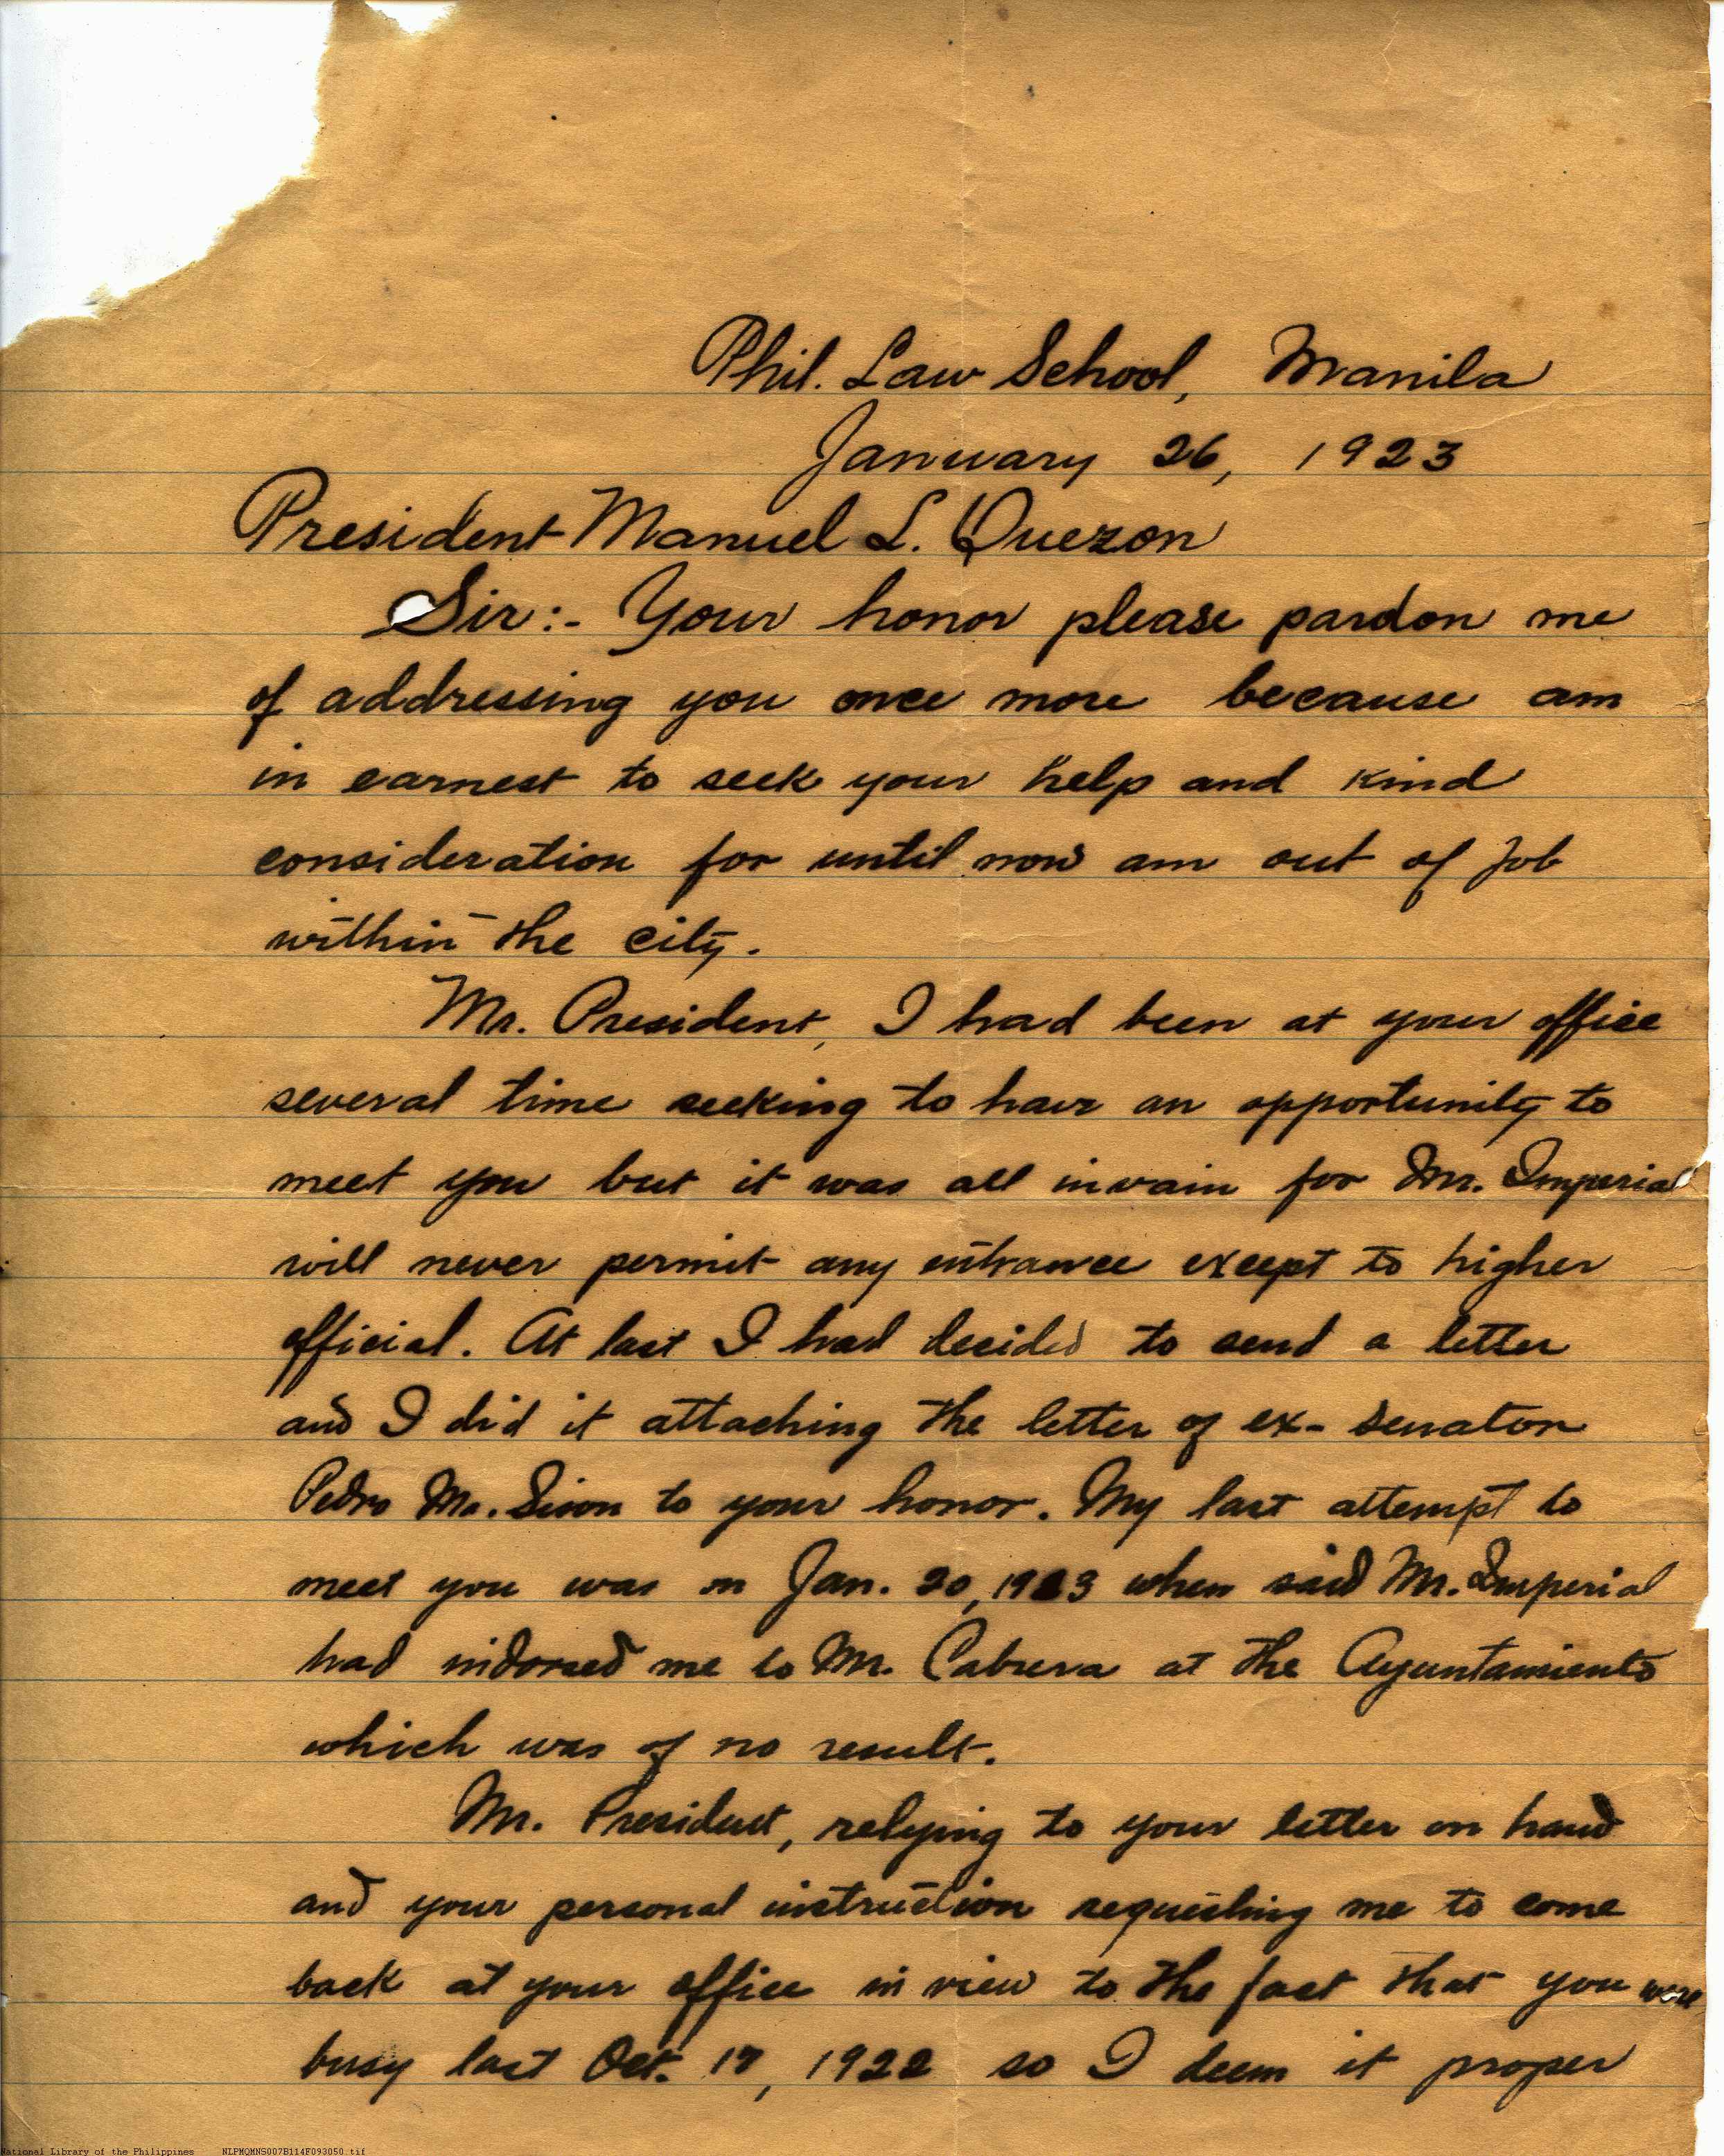 Phil. Law School, Manila
January 26, 1923
President Manuel L. Quezon
Sir:- Your honor please pardon me
of addressing you once more because am
in earnest to seek your help and kind
consideration for until now am out of job
within the city.
Mr. President, I had been at your office
several time seeking to have an opportunity to
meet you but it was all invain for Mr. Imperial
will never permit any entrance except to higher
official. At last I had decided to send a letter
and I did it attaching the letter of ex-senator
Pedro Ma. Sison to your honor. My last attempt to
meet you was on Jan. 20, 1923 when said Mr. Imperial
had indorsed me to Mr. Cabrera at the Ayuntamiento
which was of no result.
Mr. President, relying to your letter on hand
and your personal instruction requesting me to come
back at your office in view to the fact that you were
busy last Oct. 17, 1922 so I deem it proper
National Library of the Philippines NLPMQMNS007B114F093050.tif